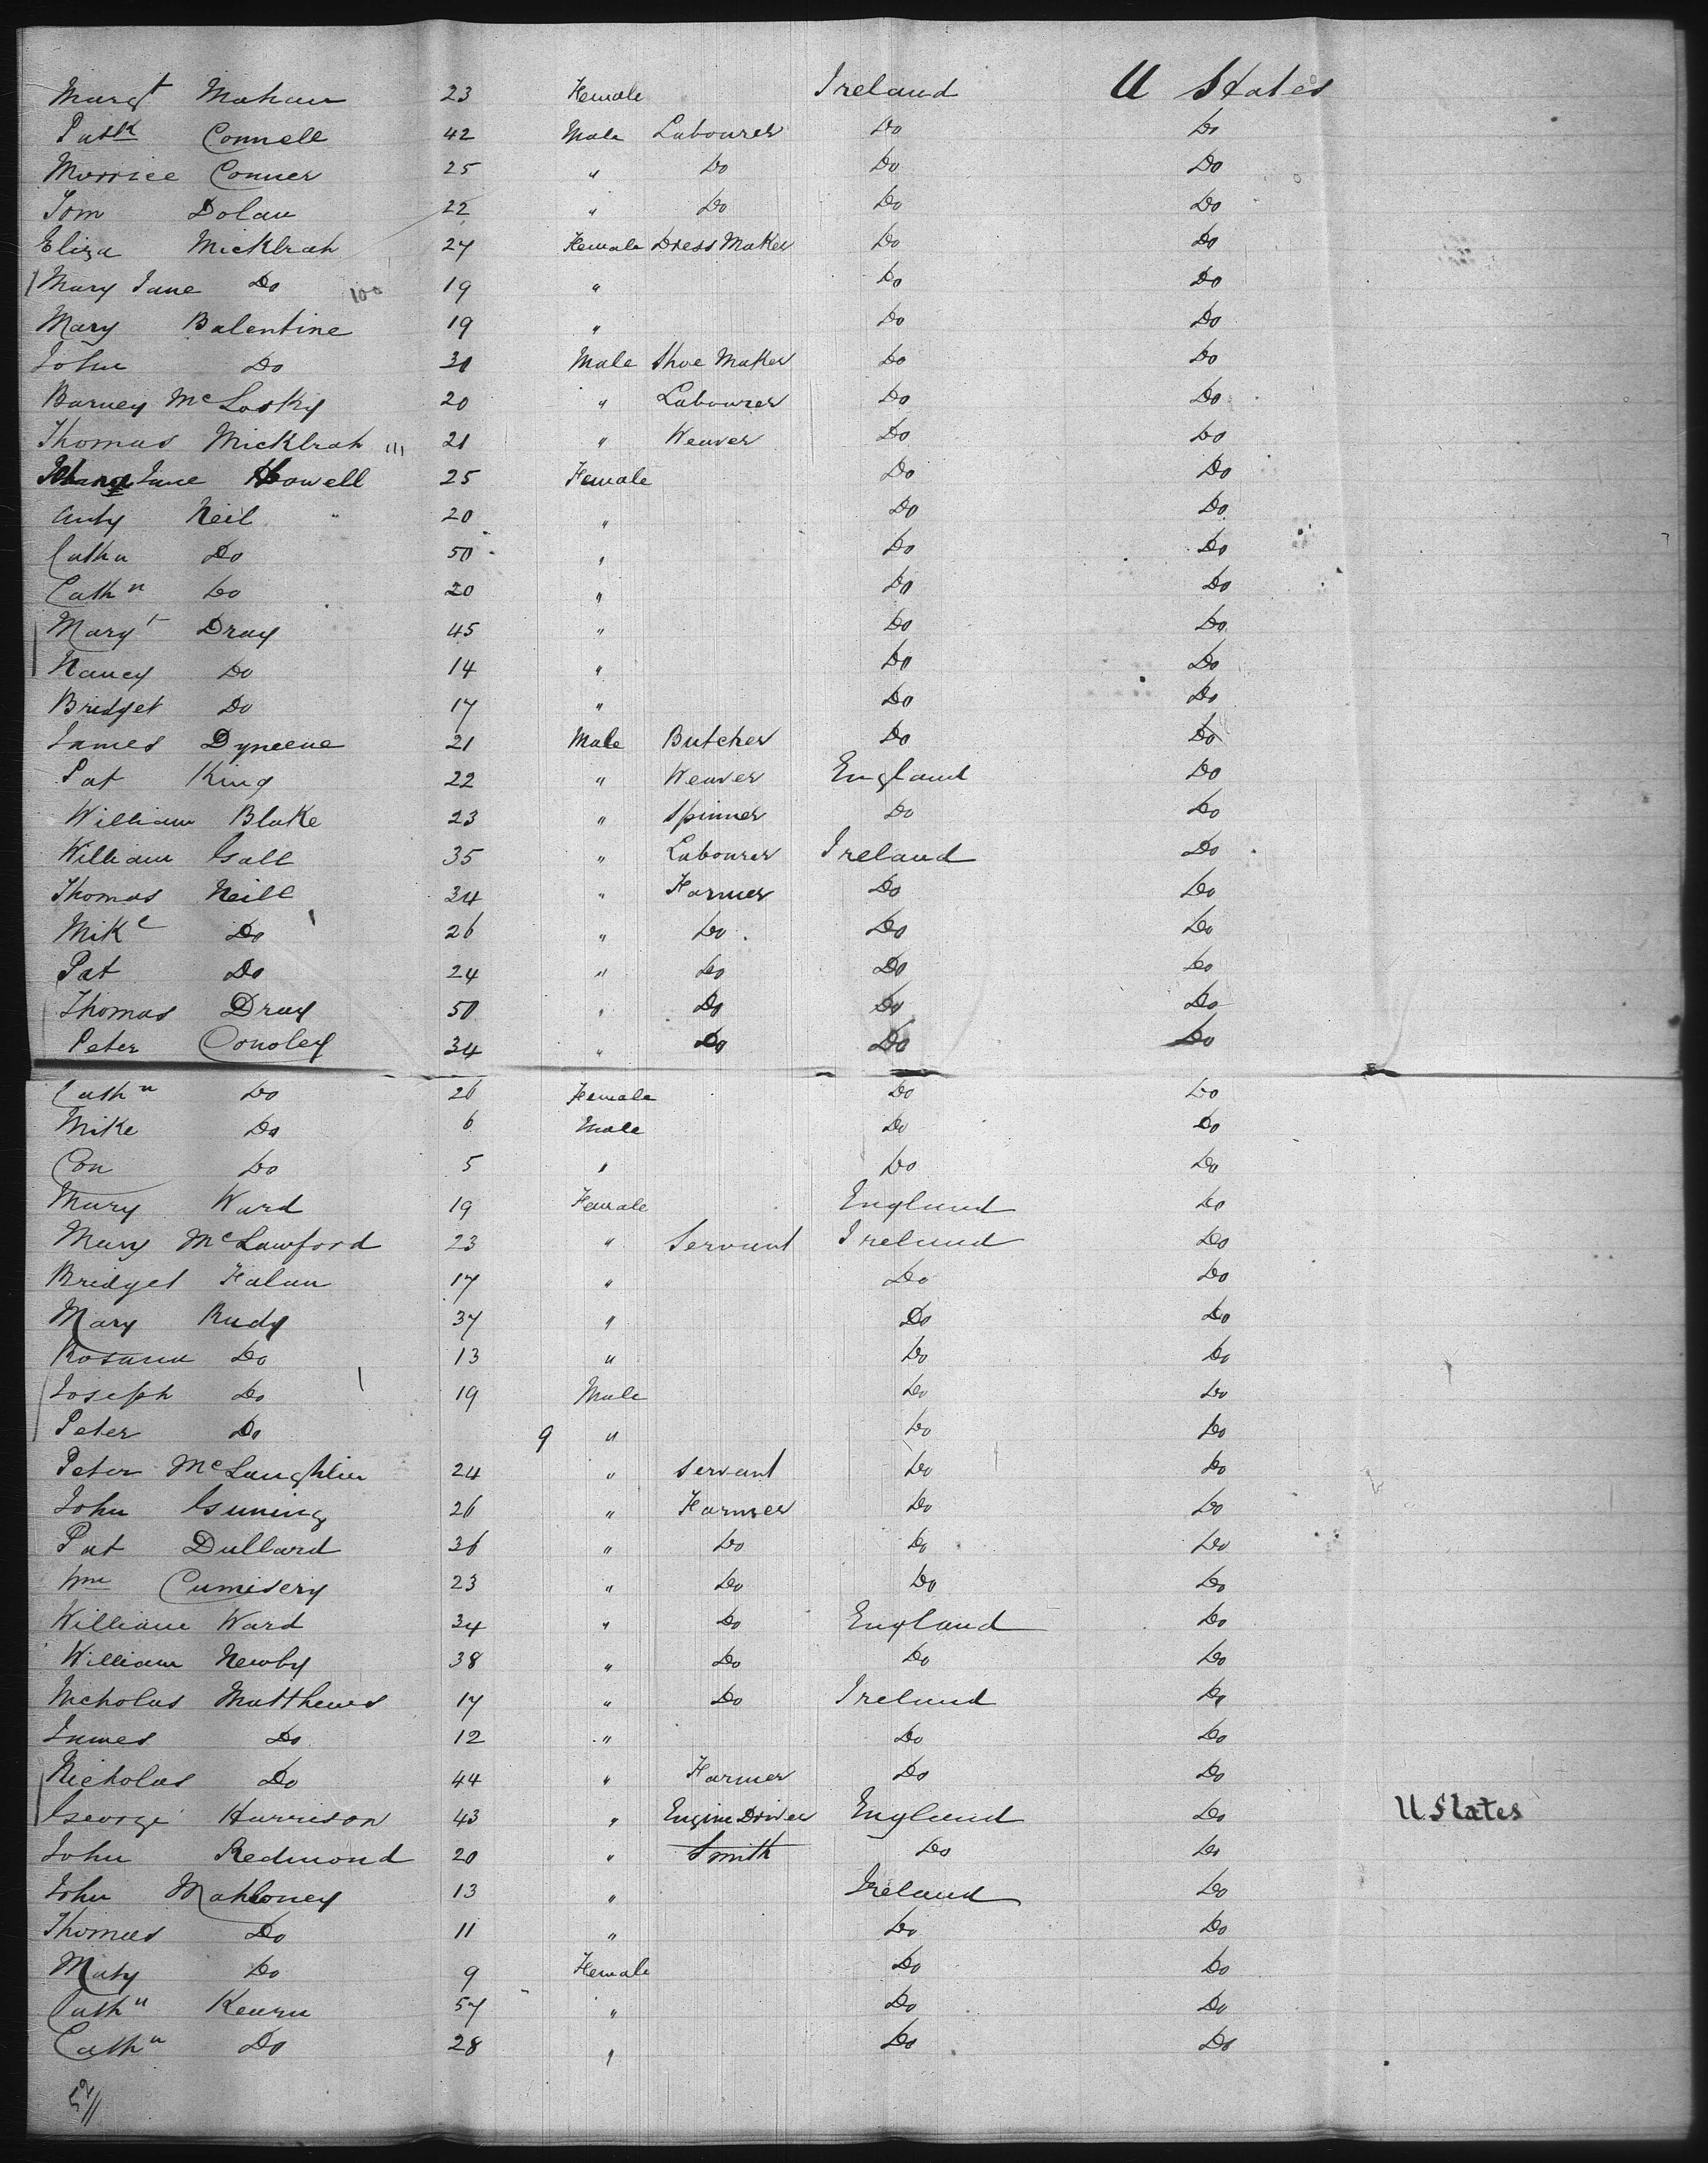 Margt Mahan 23 Female Ireland U States
Patk Connell 42 Male Labourer Do Do
Morrice Conner 25 " Do Do Do
Tom Dolan 22 " Do Do Do
Eliza Mickbrah 27 Female Dress Maker Do Do
Mary Jane Do 100 19 " Do Do
Mary Balentine 19 " Do Do
John Do 30 Male Shoe Maker Do Do
Barney McLosky 20 " Labourer Do Do
Thomas Mickbrah 21 " Weaver Do Do
Jane Howell 25 Female Do Do
Anty Neil 20 " Do Do
Catha Do 50 " Do Do
Cathn Do 20 " Do Do
Margt Dray 45 " Do Do
Nancy Do 14 " Do Do
Bridget Do 17 " Do Do
James Dyneene 21 Male Butcher Do Do
Pat King 22 " Weaver England Do
William Blake 23 " Spinner Do Do
William Gall 35 " Labourer Ireland Do
Thomas Neill 34 " Farmer Do Do
Mikl Do 26 " Do Do Do
Pat Do 24 " Do Do Do
Thomas Dray 50 " Do Do Do
Peter Conoley 34 " Do Do Do
Cathn Do 26 Female Do Do
Mike Do 6 Male Do Do
Con Do 5 " Do Do
Mary Ward 19 Female England Do
Mary McLawford 23 " Servant Ireland Do
Bridget Falan 17 " Do Do
Mary Rudy 37 " Do Do
Rosanna Do 13 " Do Do
Joseph Do 19 Male Do Do
Peter Do 9 " Do Do
Peter McLaughlin 24 " Servant Do Do
John Guning 26 " Farmer Do Do
Pat Dullard 36 " Do Do Do
Wm Cumisery 23 " Do Do Do
William Ward 34 " Do England Do
William Newby 38 " Do Do Do
Nicholas Matthews 17 " Do Ireland Do
James Do 12 " Do Do
Nicholas Do 44 " Farmer Do Do
George Harrison 43 " Engine Driver England Do U States
John Redmond 20 " Smith Do Do
John Mahloney 13 " Ireland Do
Thomas Do 11 " Do Do
Maty Do 9 Female Do Do
Cathn Kearn 57 " Do Do
Cathn Do 28 " Do Do
52